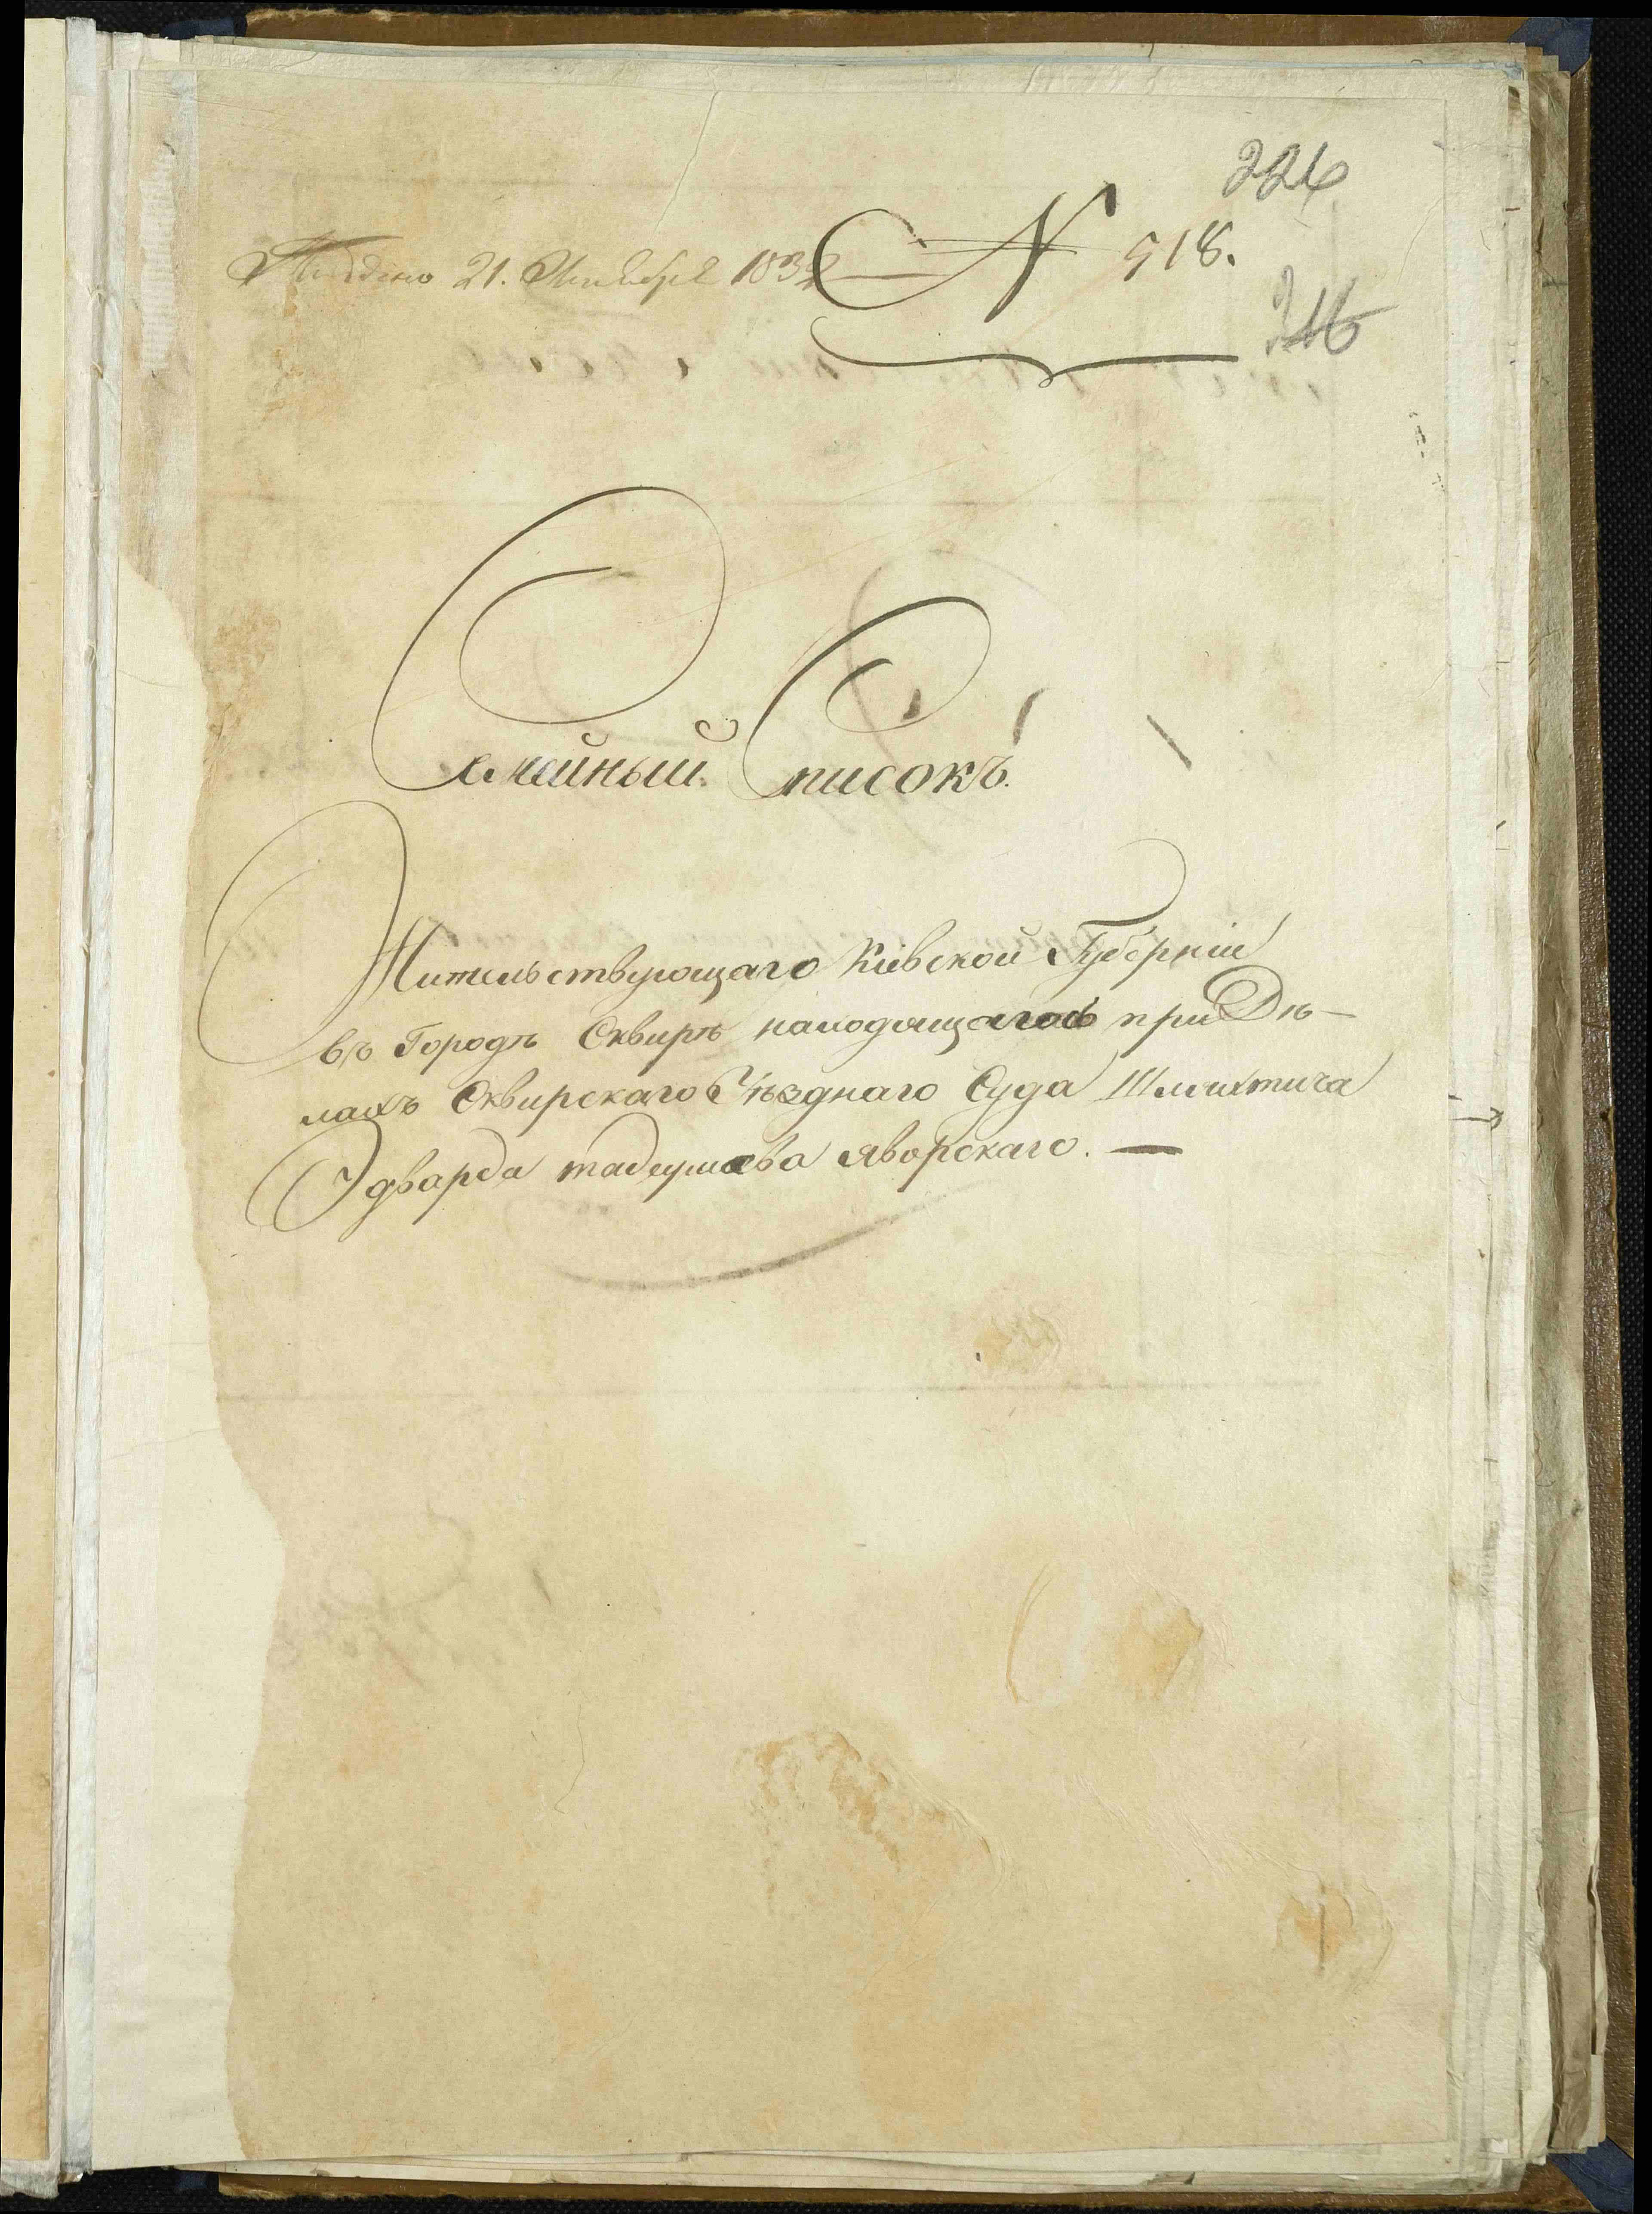 226
Подано 21. Октября 1832
N 918.
216
Семейный Списокъ.
Жительствующаго Кіевской Губерніи
въ Городѣ Сквирѣ находящагось при Дѣ–
лахъ Сквирскаго Уѣзднаго Суда Шляхтича
Эдварда тадеушова Яворскаго. —